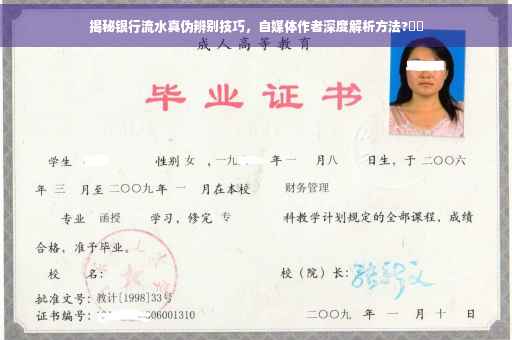 揭秘银行流水真伪辨别技巧，自媒体作者深度解析方法?▯▯
成人高等教育
毕业证书
学生 性别 女 ，一九 年 一 月八 日生，于 二〇〇六
年 三 月至 二〇〇九 年 一 月在本校 财务管理
专业 函授 学习，修完 专 科教学计划规定的全部课程，成绩
合格，准予毕业。
校 名： 校（院）长：
批准文号：教计[1998]33号
证书编号： 06001310 二〇〇九 年 一 月 十 日